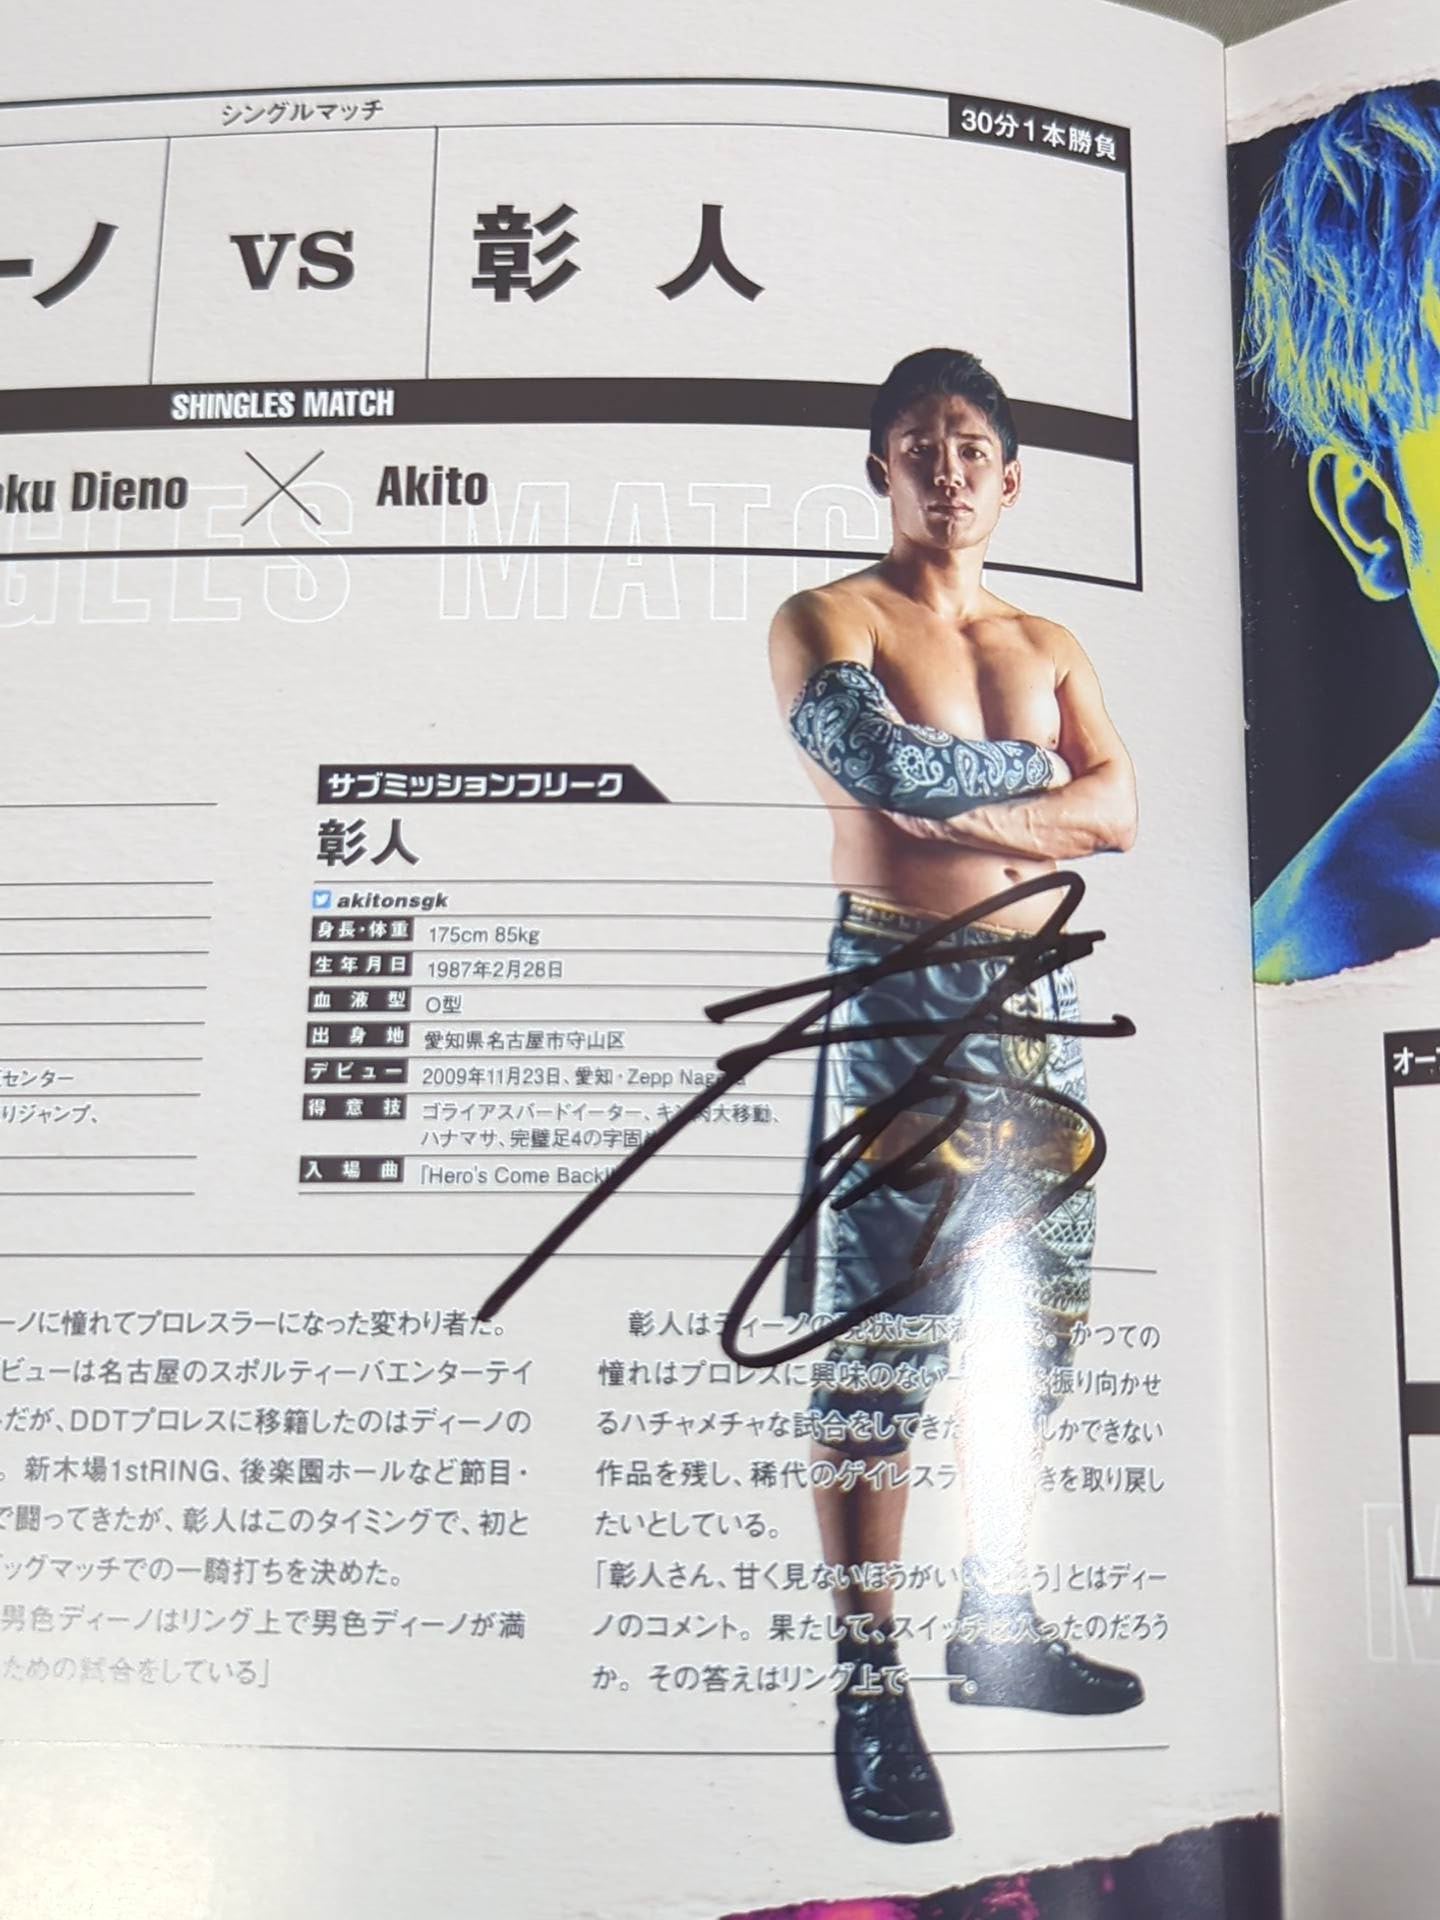 シングルマッチ
30分1本勝負
ーノ vs 彰人
SHINGLES MATCH
oku Dieno × Akito
GLES MATC
サブミッションフリーク
彰人
akitonsgk
身長・体重 175cm 85kg
生年月日 1987年2月28日
血液型 O型
出身地 愛知県名古屋市守山区
デビュー 2009年11月23日、愛知・Zepp Nagoya
得意技 ゴライアスバードイーター、キン肉大移動、
ハナマサ、完璧足4の字固め
入場曲 「Hero's Come Back!!」
センター
りジャンプ、
ーノに憧れてプロレスラーになった変わり者だ。
ビューは名古屋のスポルティーバエンターテイ
だが、DDTプロレスに移籍したのはディーノの
。新木場1stRING、後楽園ホールなど節目・
で闘ってきたが、彰人はこのタイミングで、初と
ッグマッチでの一騎打ちを決めた。
男色ディーノはリング上で男色ディーノが満
ための試合をしている」
彰人はディーノの現状に不 。かつての
憧れはプロレスに興味のない 振り向かせ
るハチャメチャな試合をしてきた しかできない
作品を残し、稀代のゲイレスラ きを取り戻し
たいとしている。
「彰人さん、甘く見ないほうがい う」とはディー
ノのコメント。果たして、スイッチは入ったのだろう
か。その答えはリング上で――。
オー
M